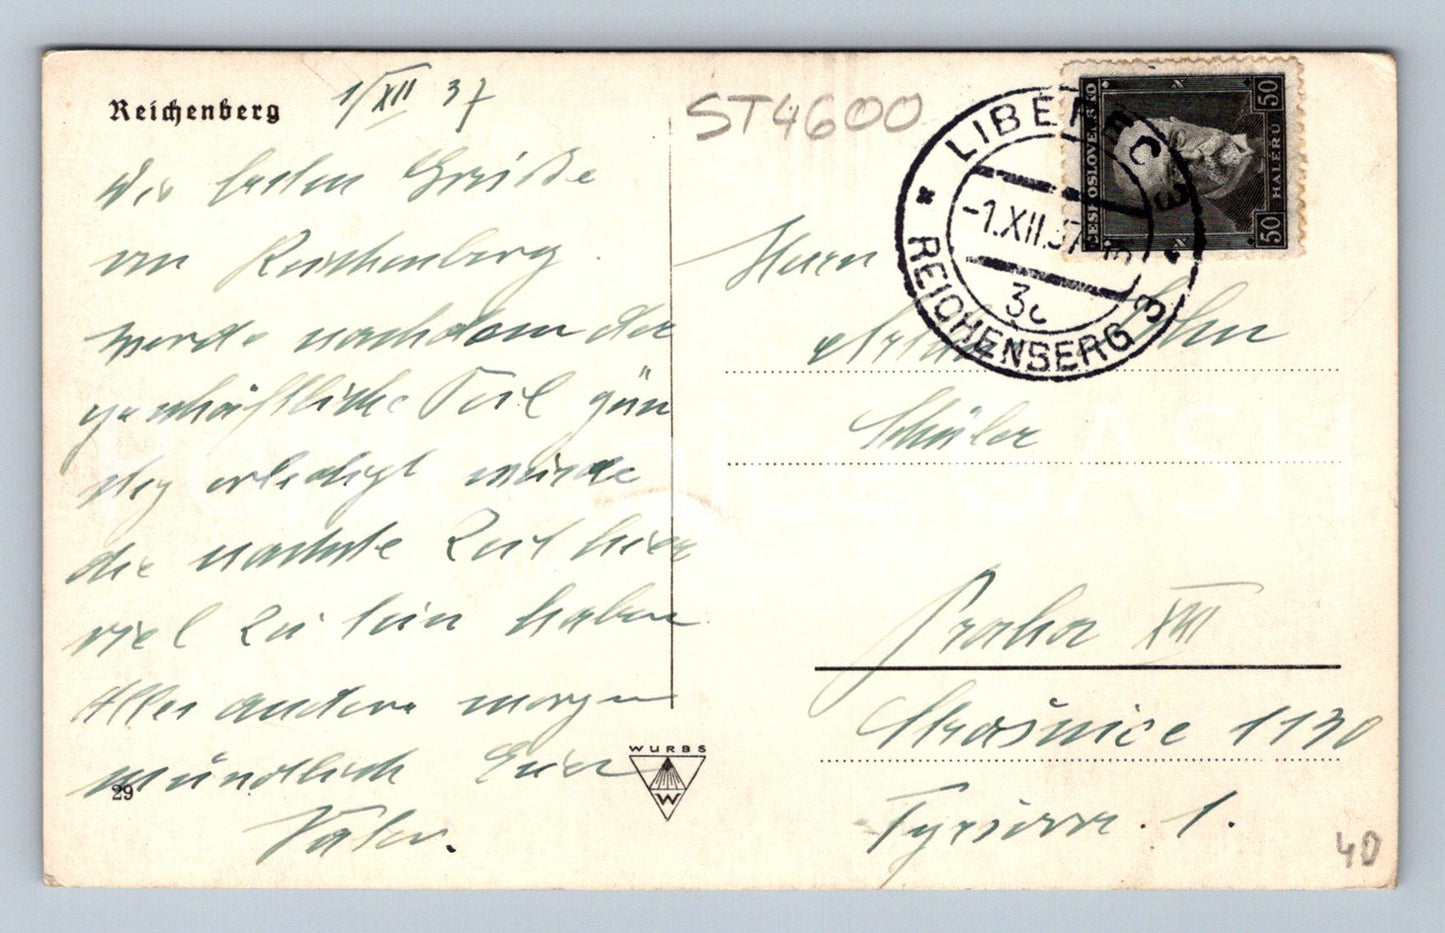 Reichenberg
1/XII 37
ST4600
LIBEREC 3
-1.XII.37.-16
3c
REICHENBERG 3
ČESKOSLOVENSKO
50
HALÉŘŮ
50
Die besten Grüsse
von Reichenberg.
werde nachdem der
geschäftliche Teil gün
stig erledigt wurde
die nächste Zeit hier
viel zu tun haben
Alles andere morgen
mündlich Euer
Vater.
29
WURBS
W
Herrn
Schüler
Praha XIII
Strašnice 1130
1.
40